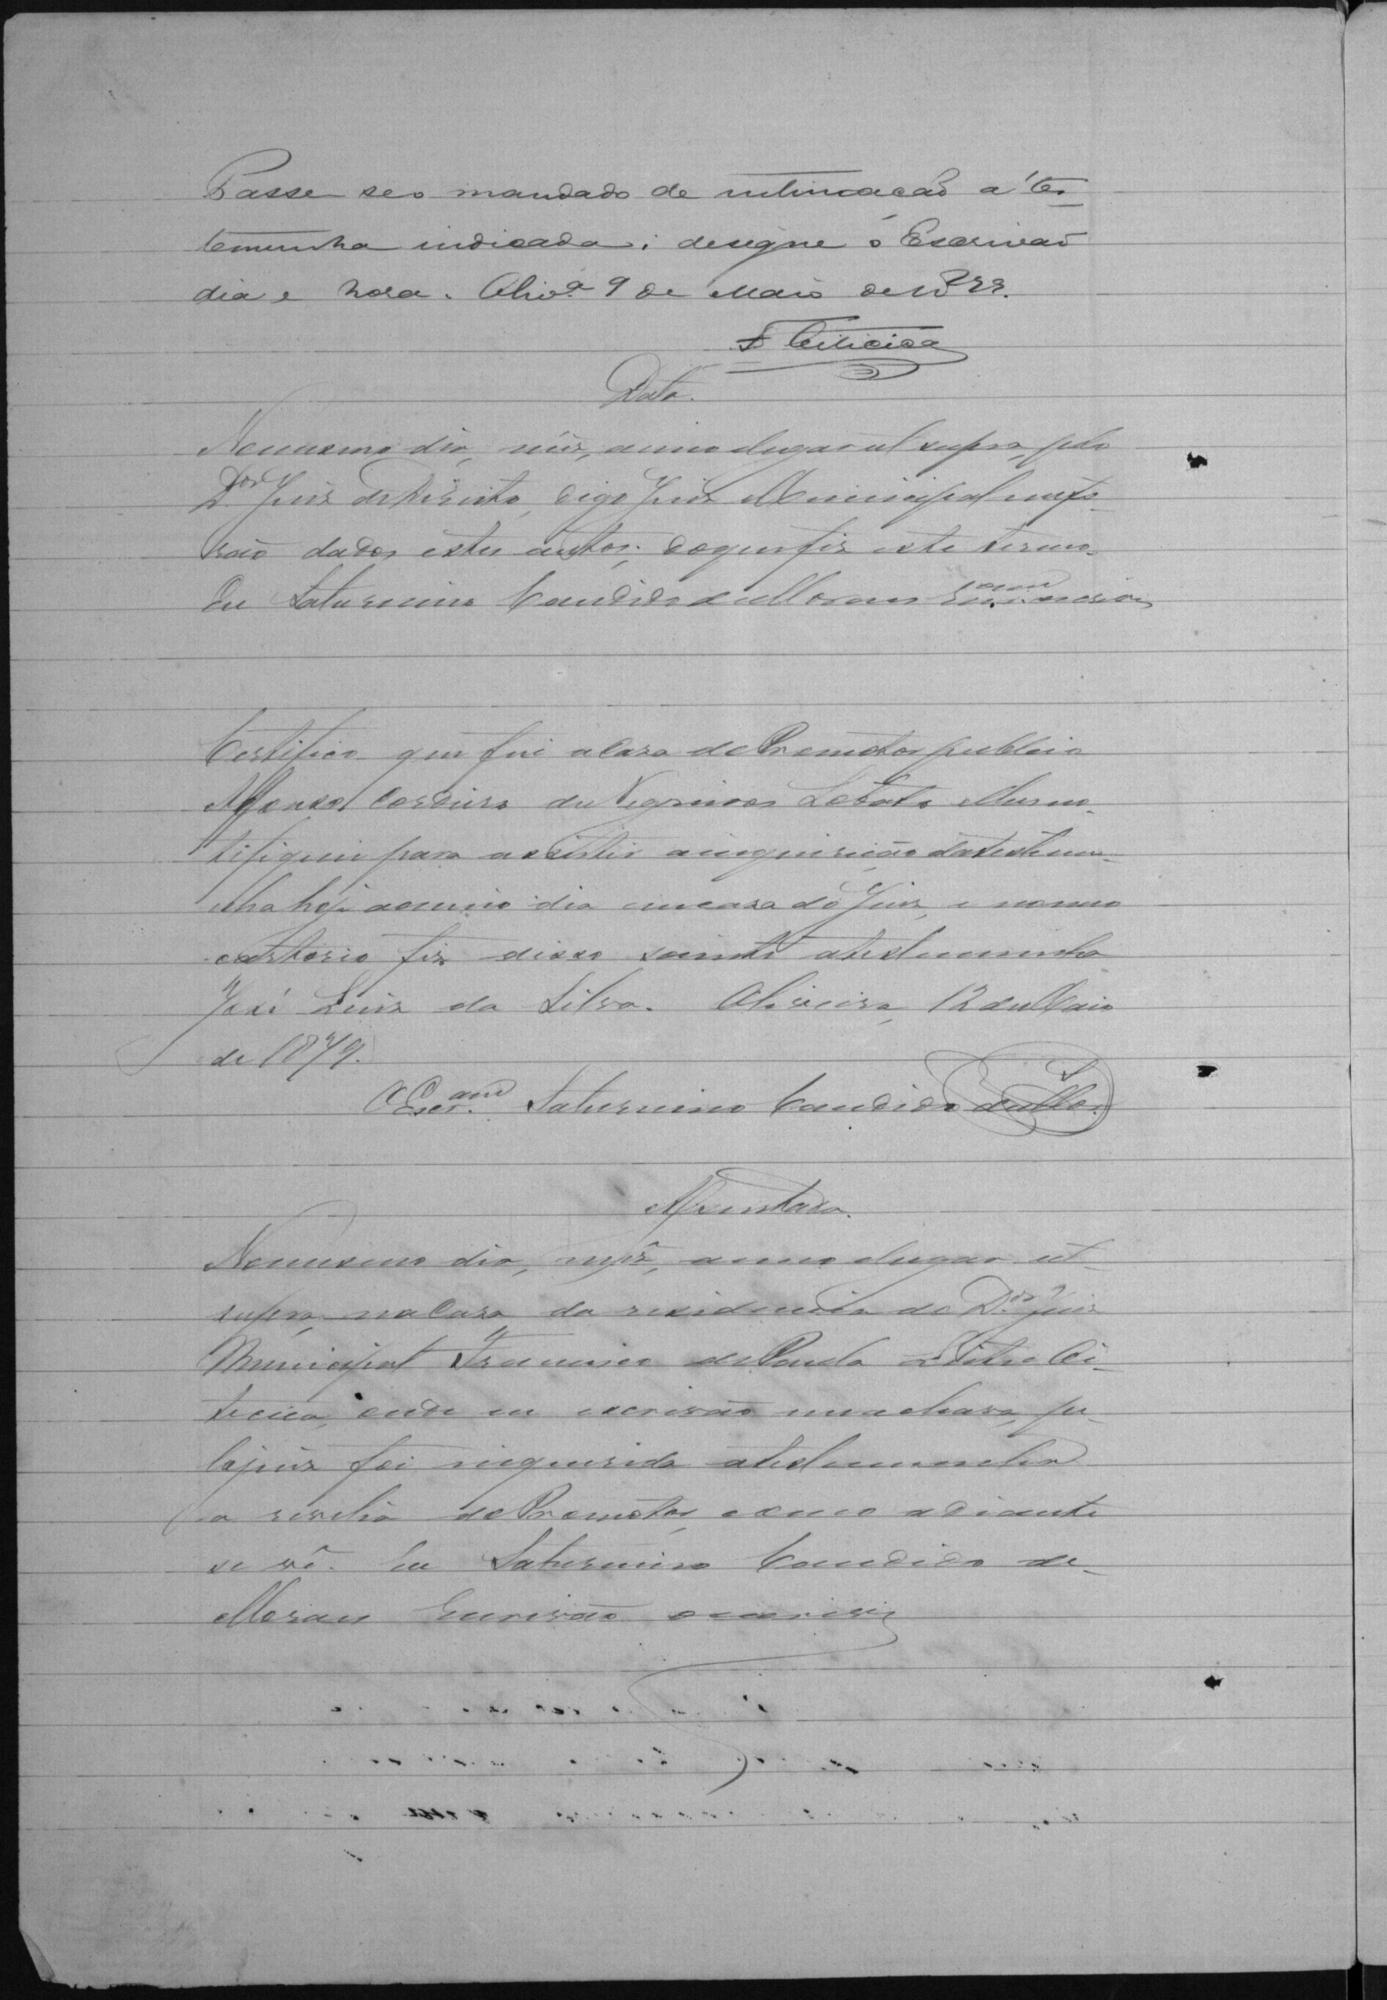 Passe se o mandado de intimação a' tes
temunha indicada; designe o Escrivão
dia e hora. Olivrª 9 de Maio de
F Citicica
Data.
No mesmo dia, mês, anno e lugar ut supra, pelo
Dor Juiz de Direito, digo Juiz Municipal me fo
rão dados estes autos; do que fiz este termo.
Eu Saturnino Candido de Moraes Escam o escrevi
Certifico que fui a casa do Promotor publico
Affonso Cordeiro de Negreiros Lobato e
tifiquei para assistir a inquirição da testemu
nha hoje ao meio dia em casa do Juiz, e no meu
cartorio fiz disso sciente a testemunha
José Luiz da Silva. Oliveira, 12 de Maio
de 1879.
O Escram Saturnino Candido de Mo.
Assentada.
No mesmo dia, mez, anno e lugar ut
supra, na Casa da residencia do Dor Juiz
Municipal Francisco de Paula
onde eu escrivão me achava, pe
lo juiz foi inquerida a testemunha
a revelia do Promotor, como adiante
se vê. Eu Saturnino Candido de
Moraes Escrivão o escrevi